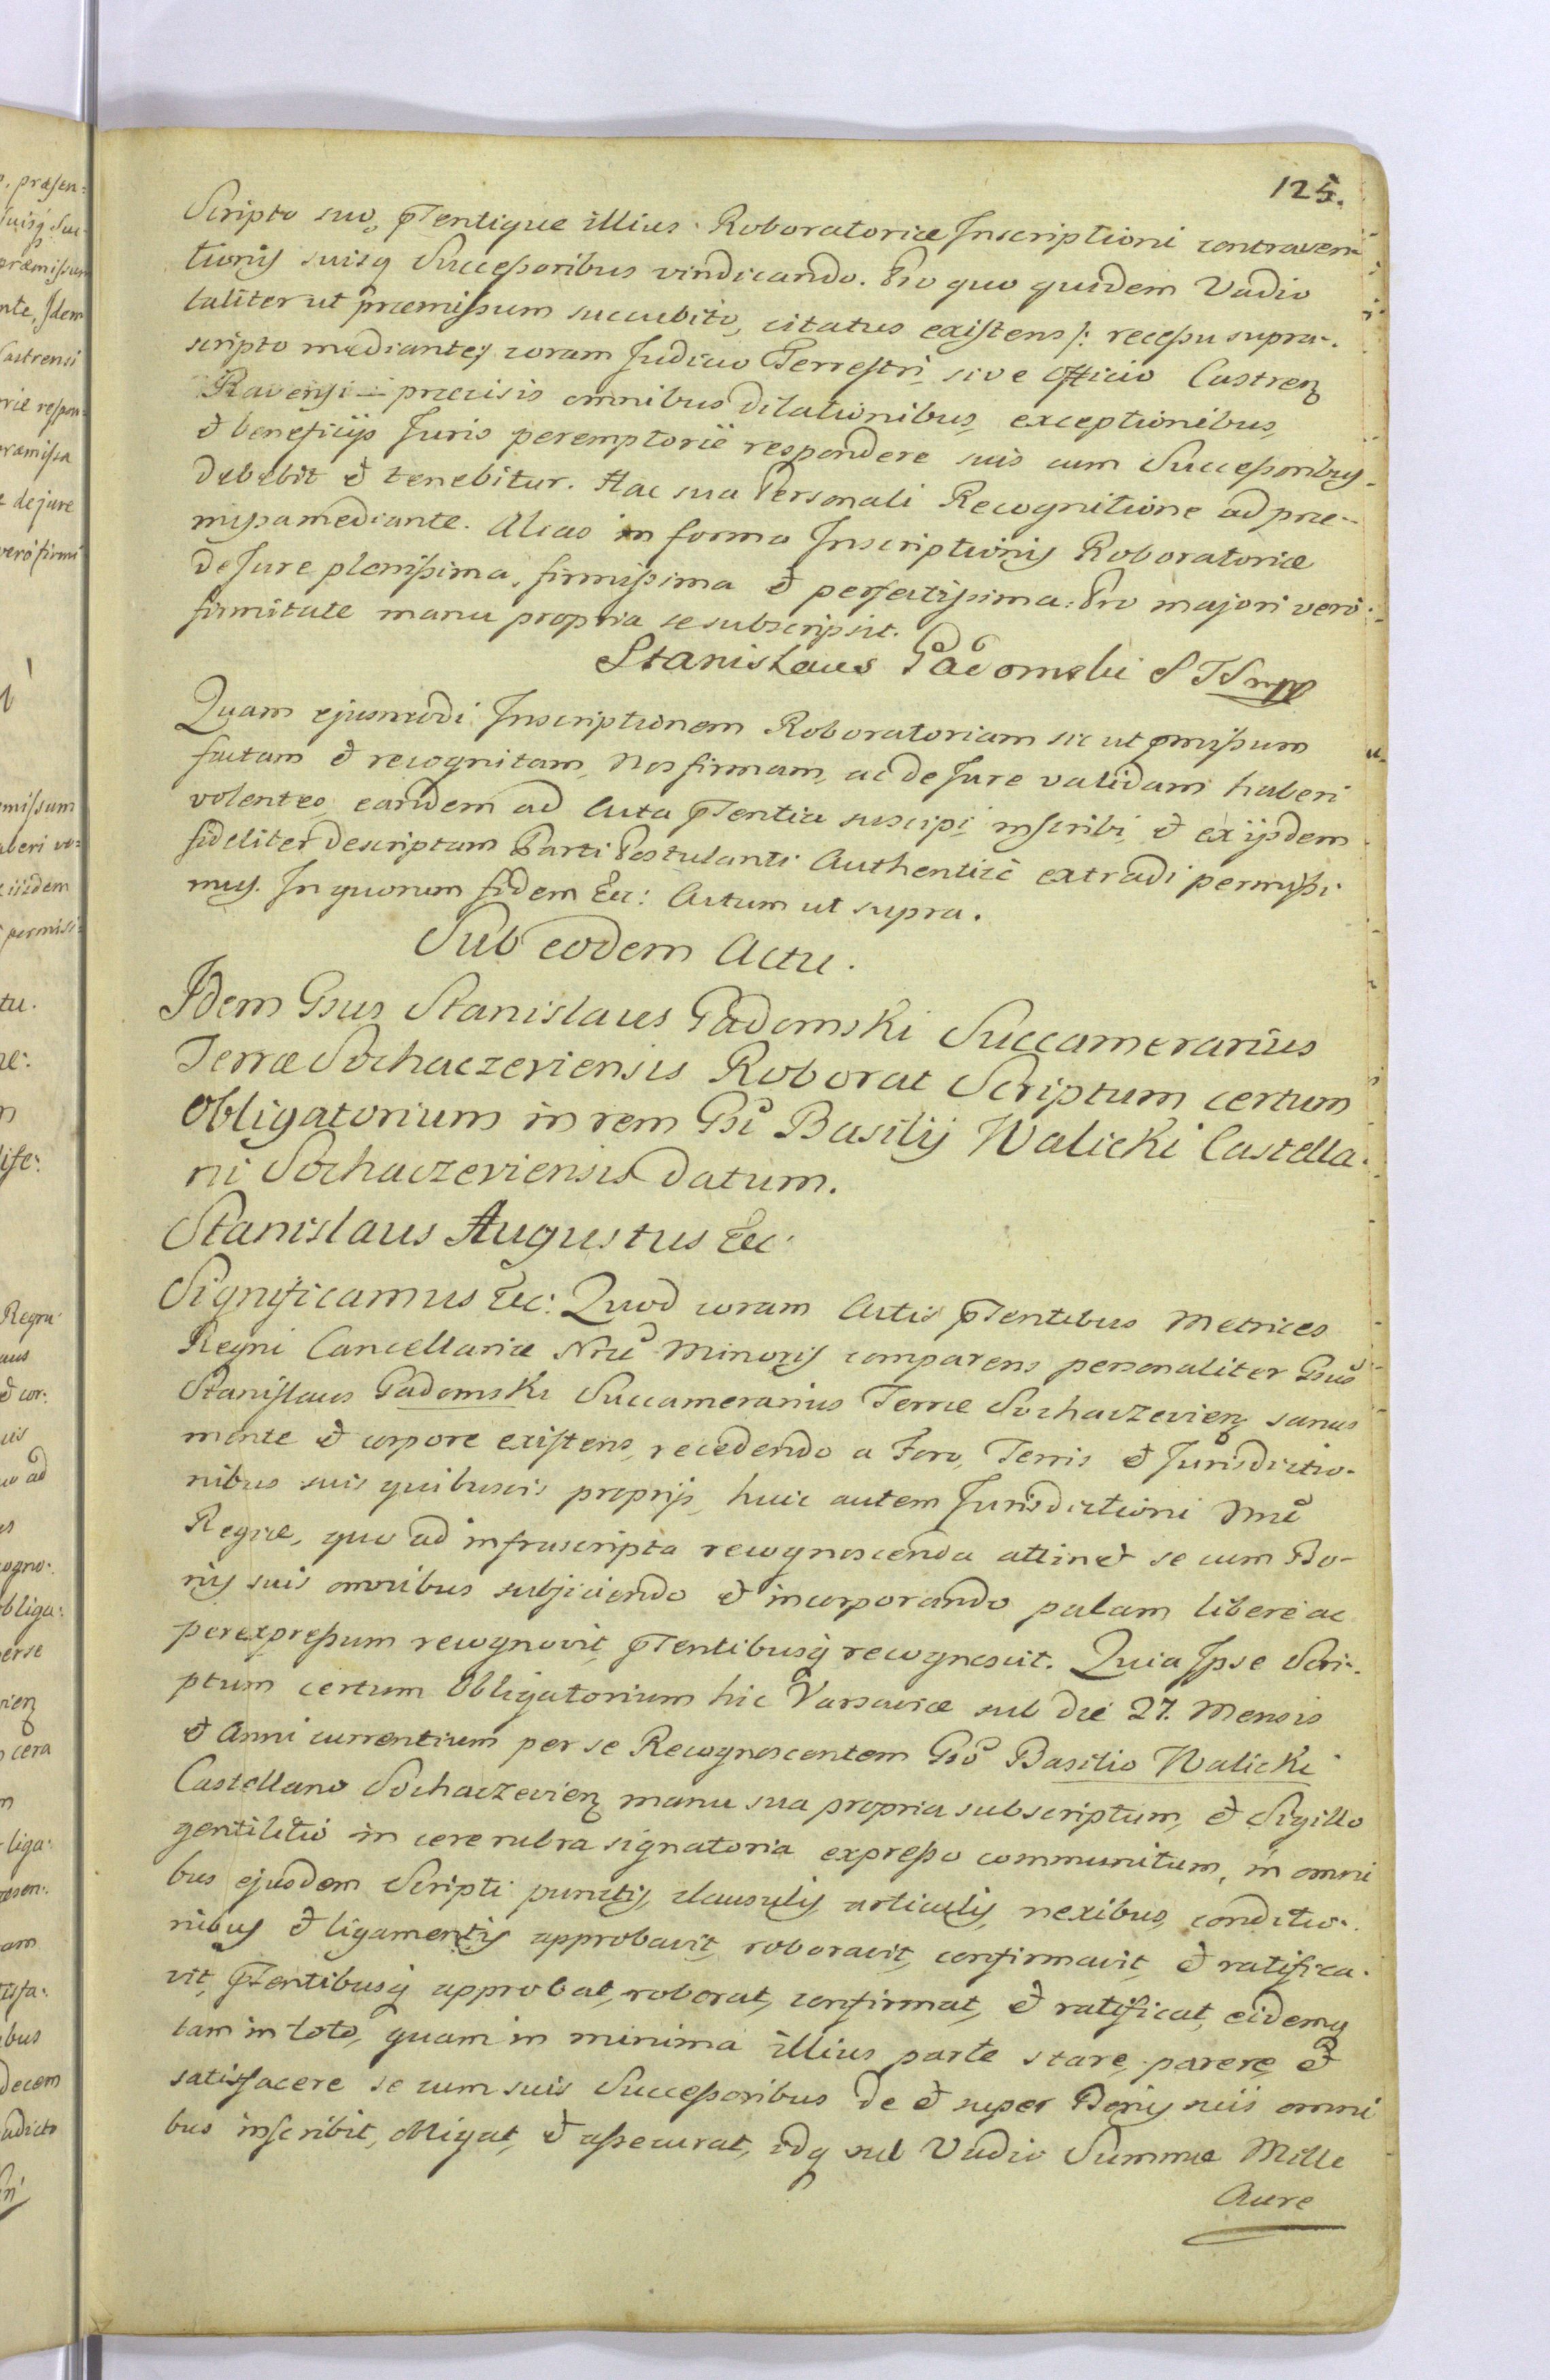 125.
Scripto suo, pñtentique illius Roboratoriæ Inscriptioni contraven-
tionis suisq Successoribus vindicando. Pro quo quidem Vadio
taliter ut præmissum succubito, citatus existens /: recessu supra-
scripto mediante:/ coram Judicio Terrestri, sive Officio Castren
Ravensi præcisis omnibus dilationibus, exceptionibus,
et beneficijs Juris peremptoriè respondere suis cum Successoribus
debebit et tenebitur. Hac sua Personali Recognitione ad præ-
missa mediante. Alias in forma Inscriptionis Roboratoriæ
de Jure plenissima, firmissima et perfectissima. Pro majori verò
firmitate manu propria se subscripsit.
Stanislaus Gadomski STS mp
Quam ejusmodi Inscriptionem Roboratoriam sic ut pmissum
factam et recognitam, Nos firmam, ac de Jure validam haberi
volentes, eandem ad Acta pñtentia suscipi, inscribi, et ex ijsdem
fideliter descriptam Parti Postulanti Authenticè extradi permissi-
mus. In quorum fidem &c: Actum ut supra.
Sub eodem Actu.
Idem Gsus Stanislaus Gadomski Succamerarius
Terræ Sochaczeviensis Roborat Scriptum certum
Obligatorium in rem Gsi Basilij Walicki Castella-
ni Sochaczeviensis datum.
Stanislaus Augustus &c:
Significamus &c: Quod coram Actis pñtentibus Metrices
Regni Cancellariæ Nræ Minoris comparens personaliter Gsus
Stanislaus Gadomski Succamerarius Terræ Sochaczevien sanus
mente et corpore existens, recedendo a Foro, Terris et Jurisdictio-
nibus suis quibusvis proprijs, huic autem Jurisdictioni Nræ
Regiæ, quo ad infrascripta recognoscenda attinet se cum Bo-
nis suis omnibus subjiciendo et incorporando palam liberè ac
per expressum recognovit, pñtentibusq recognoscit. Quia Ipse Scri-
ptum certum Obligatorium hic Varsaviæ sub die 27. Mensis
et Anni currentium per se Recognoscentem Gso Basilio Walicki
Castellano Sochaczevien manu sua propria subscriptum, et Sigillo
gentilitio in cere rubra signatoria expresso communitum, in omni
bus ejusdem Scripti punctis, clausulis, articulis, nexibus, conditio-
nibus et ligamentis approbavit, roboravit, confirmavit, et ratifica-
vit, pñtentibusq approbat, roborat, confirmat, et ratificat, eidemq
tam in toto, quam in minima illius parte stare, parere, et
satisfacere se cum suis Successoribus de et super Bonis suis omni
bus inscribit, obligat, et assecurat, idq sub Vadio Summæ Mille
Aure